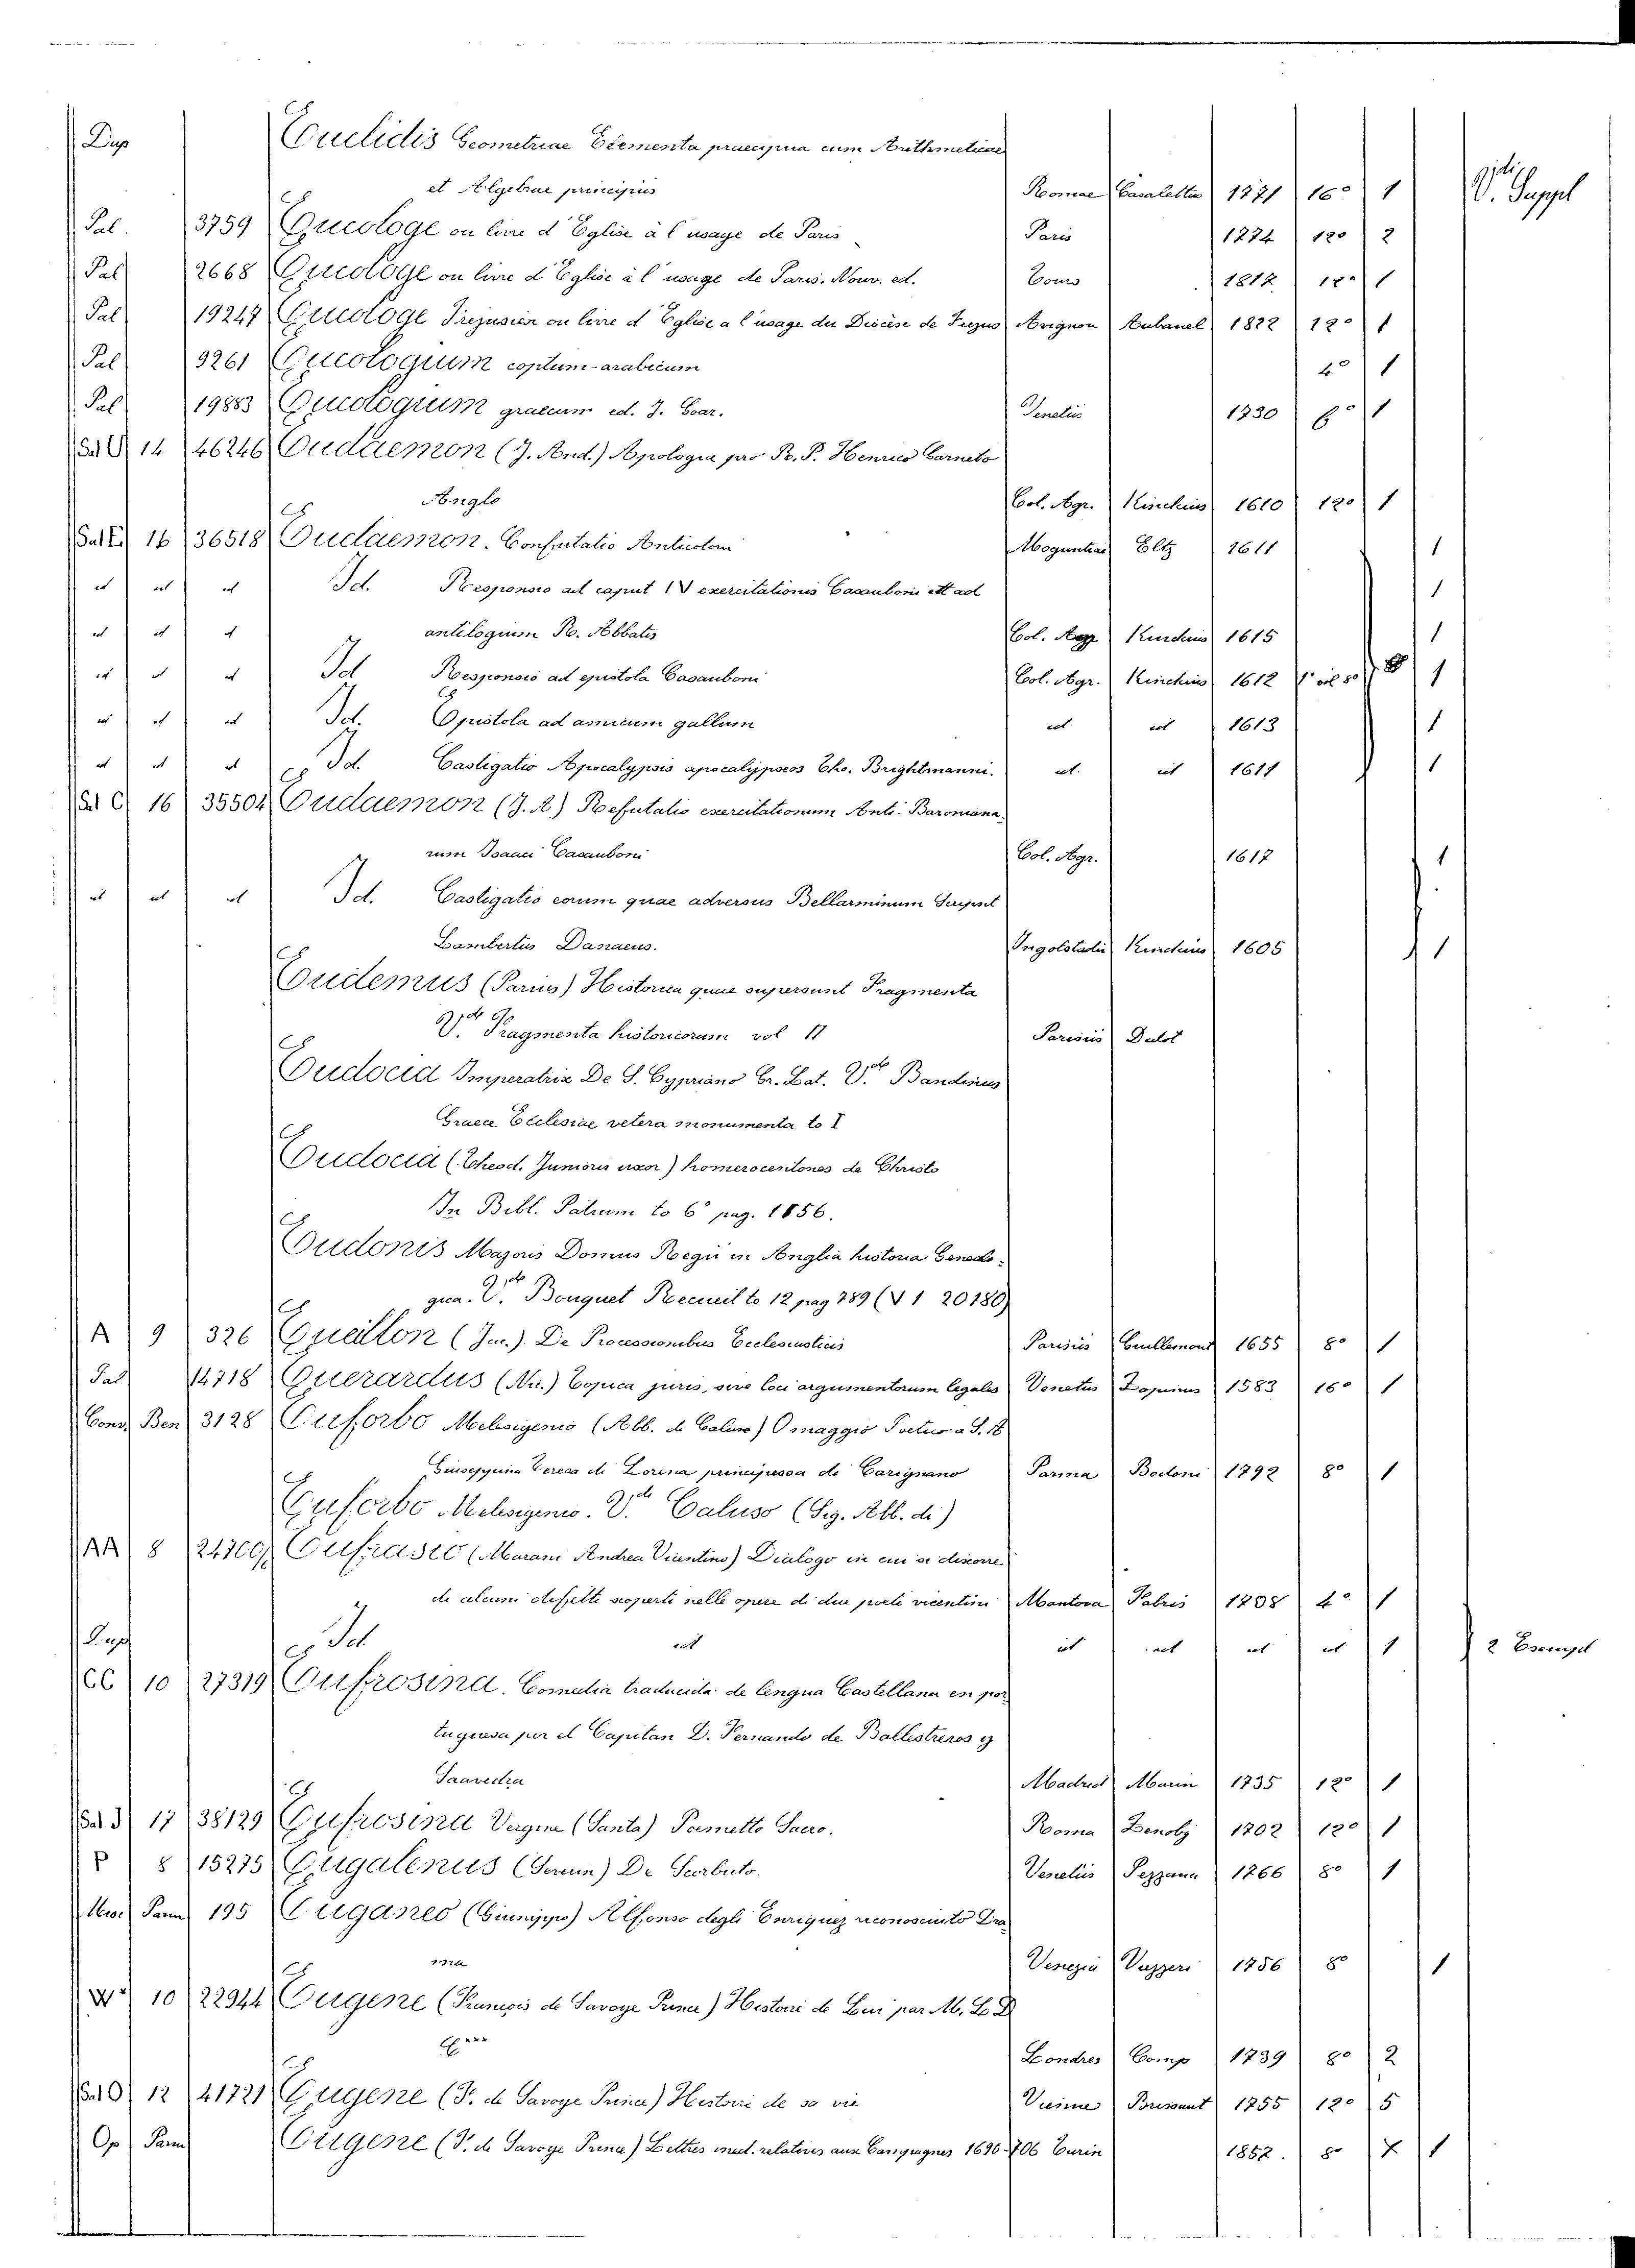 Dup Euclidis Geometriae Elementa praecipua cum Arithmeticae
et Algebrae principiis Romae Casaletti 1771 16° 1 V. Suppl
Pal. 3759 Eucologe ou livre d'Eglise à l'usage de Paris Paris 1774 12° 2
Pal 2668 Eucologe ou livre d'Eglise à l'usage de Paris. Nouv. ed. Tours 1817 12° 1
Pal 19247 Eucologe Frejusien ou livre d'Eglise a l'usage du Diocèse de Frejus Avignon Aubanel 1822 12° 1
Pal 9261 Eucologium coptum-arabicum 4° 1
Pal 19883 Eucologium graecum ed. J. Goar. Venetiis 1730 6° 1
14 46246 Eudaemon (J. And.) Apologia pro R. P. Henrico Garneto
Anglo Col. Agr. Kinchius 1610 12° 1
16 36518 Eudaemon. Confutatio Anticotoni Moguntiae Eltz 1611 1
id id id Id. Responsio ad caput IV exercitationis Casauboni et ad 1
id id id antilogium R. Abbatis Col. Agr Kinchius 1615 1
id id id Id Responsio ad epistola Casauboni Col. Agr. Kinchius 1612 8° 1
id id id Id. Epistola ad amicum gallum id id 1613 1
id id id Id. Castigatio Apocalypsis apocalypseos Tho. Brightmanni. id. id 1611 1
16 35504 Eudaemon (J. A.) Refutatio exercitationum Anti-Baroniana-
rum Isaaci Casauboni Col. Agr. 1617 1
id id id Id. Castigatio eorum quae adversus Bellarminum Scripsit
Lambertus Danaeus. Ingolstadii Kinchius 1605 1
Eudemus (Parius) Historica quae supersunt Fragmenta
V. Fragmenta historicorum vol II Parisiis Didot
Eudocia Imperatrix De S. Cypriano Gr. Lat. V. Bandinus
Graece Ecclesiae vetera monumenta to I
Eudocia (Theod. Junioris uxor) homerocentones de Christo
In Bibl. Patrum to 6° pag. 1856.
Eudonis Majoris Domus Regii in Anglia historia Genealo-
gica. V. Bouquet Recueil to 12 pag 789 (V 1 20180)
A 9 326 Eueillon (Jac.) De Processionibus Ecclesiasticis Parisiis Guillemont 1655 8° 1
Pal 14718 Euerardus (Nic.) Topica juris, sive loci argumentorum legales Venetiis Zopinius 1583 16° 1
Cons Ben 3128 Euforbo Melesigenio (Abb. de Caluso) Omaggio Poetico a S. A
Giuseppina Teresa di Lorena principessa di Carignano Parma Bodoni 1792 8° 1
Euforbo Melesigenio. V. Caluso (Sig. Abb. di)
AA 8 24700 Eufrasio (Marani Andrea Vicentino) Dialogo in cui si discorre
di alcuni diffetti scoperti nelle opere di due poeti vicentini Mantova Fabris 1708 4° 1
Dup Id id id id id id 1 2 Esempl
CC 10 27319 Eufrosina. Comedia traducida de lengua Castellana en por
tuguesa por el Capitan D. Fernando de Ballestreros y
Saavedra Madrid Marin 1735 12° 1
17 38129 Eufrosina Vergine (Santa) Poemetto Sacro. Roma Zenobj 1702 12° 1
P 8 15275 Eugalenus (Severin) De Scorbuto. Venetiis Pezzana 1766 8° 1
Misc Parm 195 Euganeo (Giunippo) Alfonso degli Enriquez riconosciuto Dra
ma Venezia 1756 8° 1
10 22944 Eugene (François de Savoye Prince) Histoire de Lui par M. L. D
C*** Londres Comp 1739 8° 2
12 41721 Eugene (F. de Savoye Prince) Histoire de sa vie Vienne Briffaut 1755 12° 5
Op Parm Eugene (F. de Savoye Prince) Lettres ined. relatives aux Campagnes 1690-706 Turin 1852. 8° 1